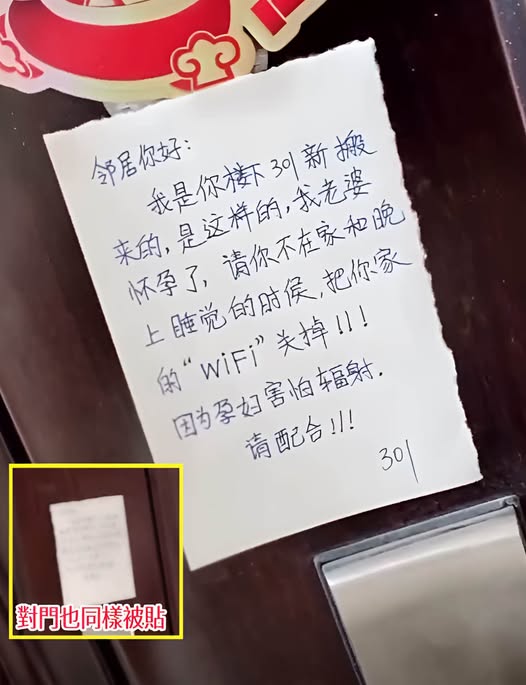 邻居你好:
我是你楼下301新搬
来的,是这样的,我老婆
怀孕了,请你不在家和晚
上睡觉的时侯,把你家
的“WiFi”关掉!!!
因为孕妇害怕辐射.
请配合!!!
301
對門也同樣被貼